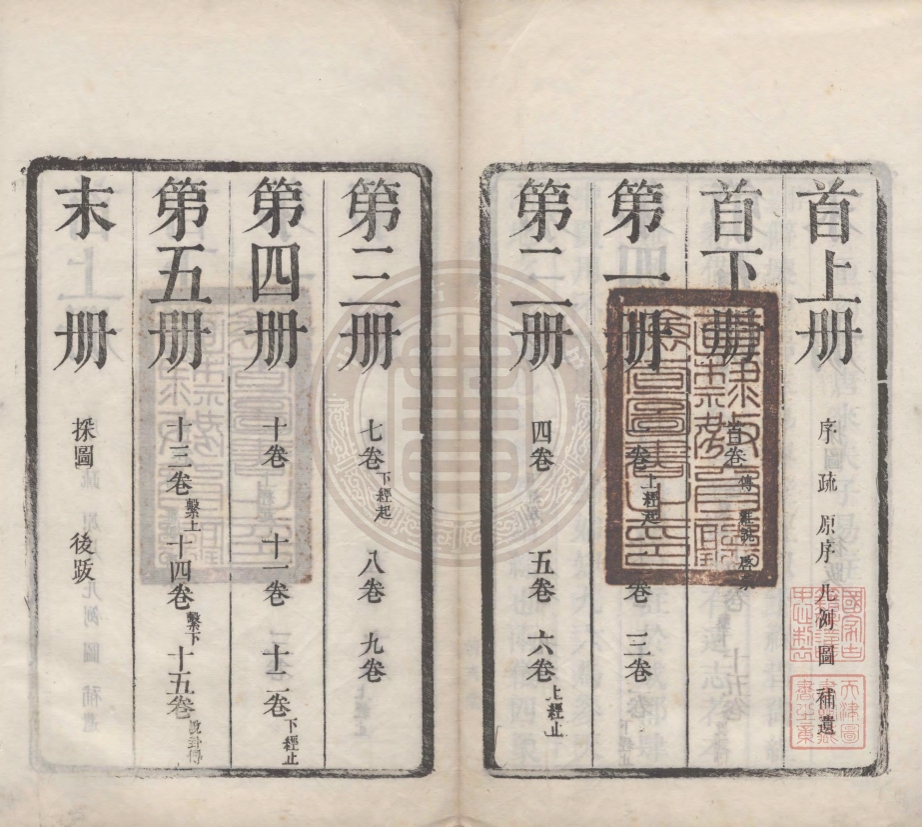 首上册 序 疏 原序 凡例 圖 補遺
首下册 首卷 傳
第一册 卷 上經起 卷 三卷
第二册 四卷 五卷 六卷 上經止
第三册 七卷 下經起 八卷 九卷
第四册 十卷 十一卷 十二卷 下經止
第五册 十三卷 繫上 十四卷 繫下 十五卷 說卦傳
末册 探圖 後跋